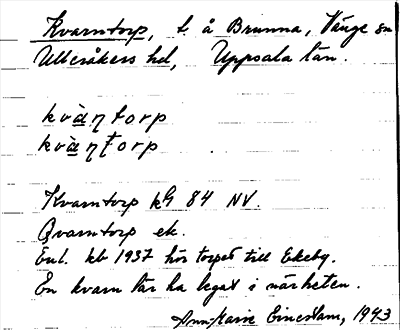 Kvarntorp, t. å Brunna, Vänge sn
Ulleråkers hd, Uppsala län.
kvàηtorp
kvàηtorp
Kvarntorp kG 84 NV.
Qvarntorp ek.
Enl. kb 1937 hör torpet till Ekeby.
En kvarn lär ha legat i närheten.
Ann-Marie Einerstam, 1943